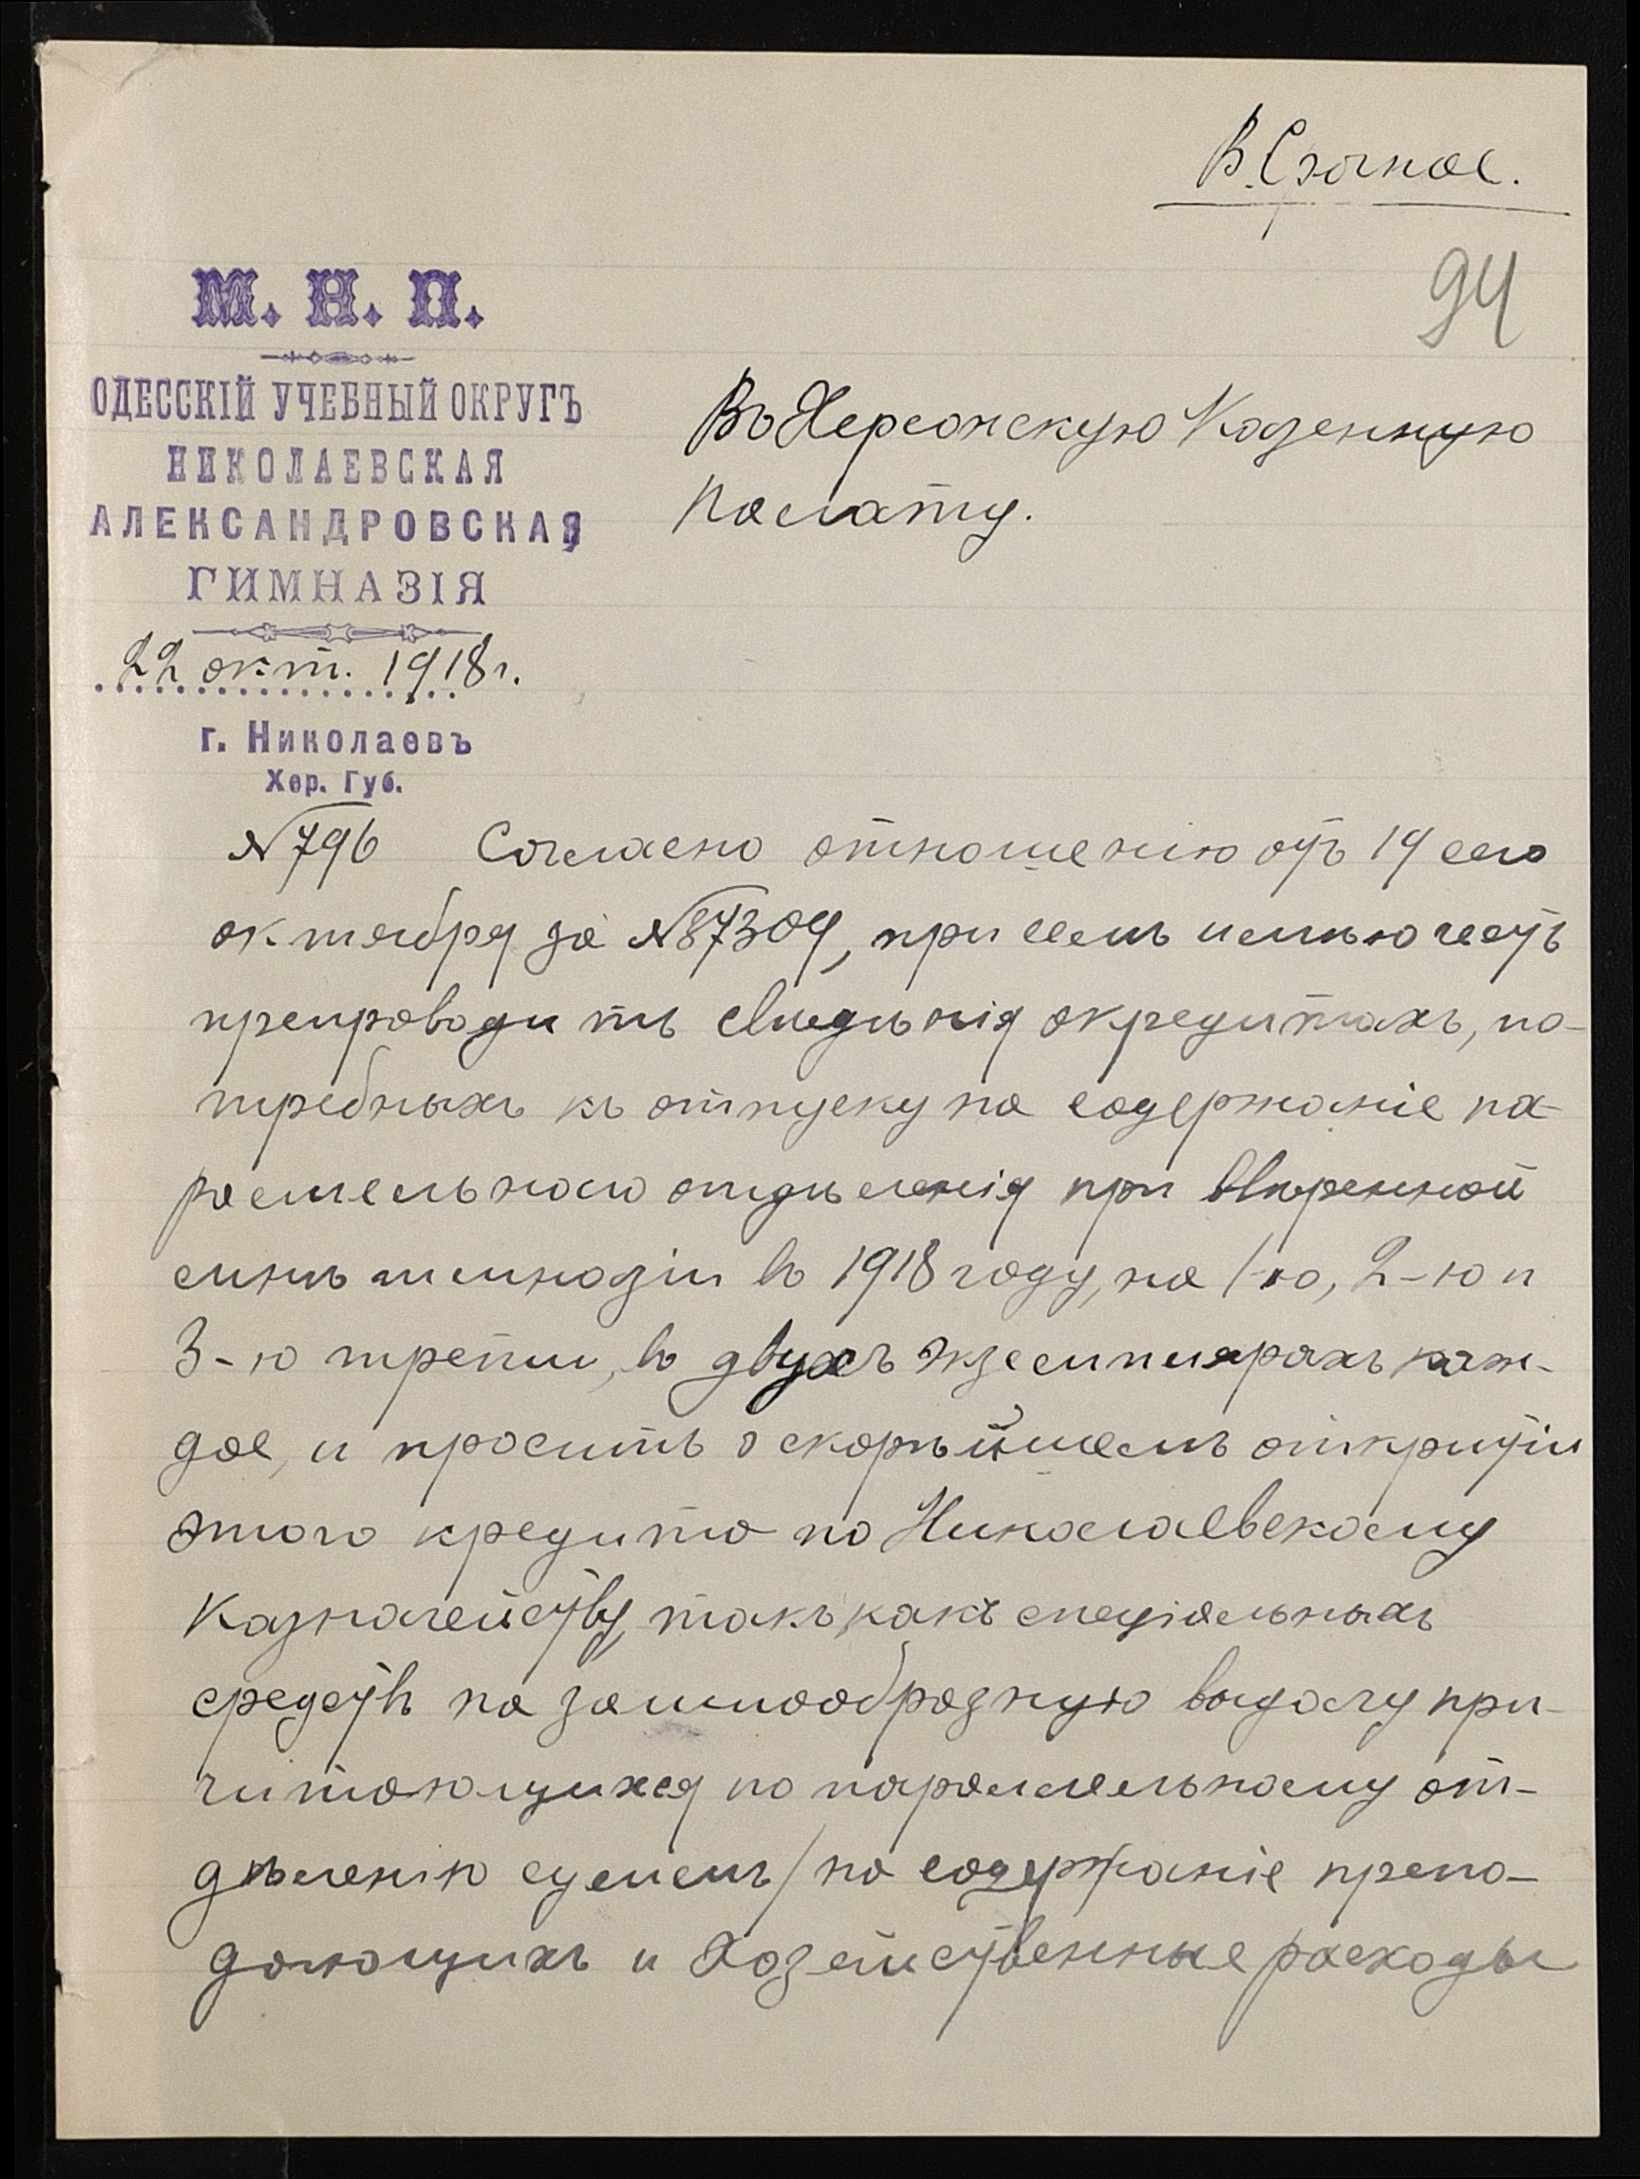 В. Срочное.
94
М. Н. П.
ОДЕССКІЙ УЧЕБНЫЙ ОКРУГЪ
НИКОЛАЕВСКАЯ
АЛЕКСАНДРОВСКАЯ
ГИМНАЗІЯ
22 окт. 1918 г.
г. Николаевъ
Хер. Губ.
Въ Херсонскую Казенную
Палату.
№ 796 Согласно отношенію отъ 19 сего
октября за № 87309, при семъ имѣю честь
препроводить свѣдѣнія о кредитахъ, по-
требныхъ къ отпуску на содержаніе па-
раллельнаго отдѣленія при ввѣренной
мнѣ гимназіи въ 1918 году, на 1-ю, 2-ю и
3-ю трети, въ двухъ экземплярахъ каж-
дое, и просить о скорѣйшемъ открытіи
этого кредита по Николаевскому
Казначейству, такъ какъ спеціальныхъ
средствъ на заимообразную выдачу при-
читающихся по параллельному от-
дѣленію суммъ / на содержаніе препо-
дающихъ и хозяйственные расходы